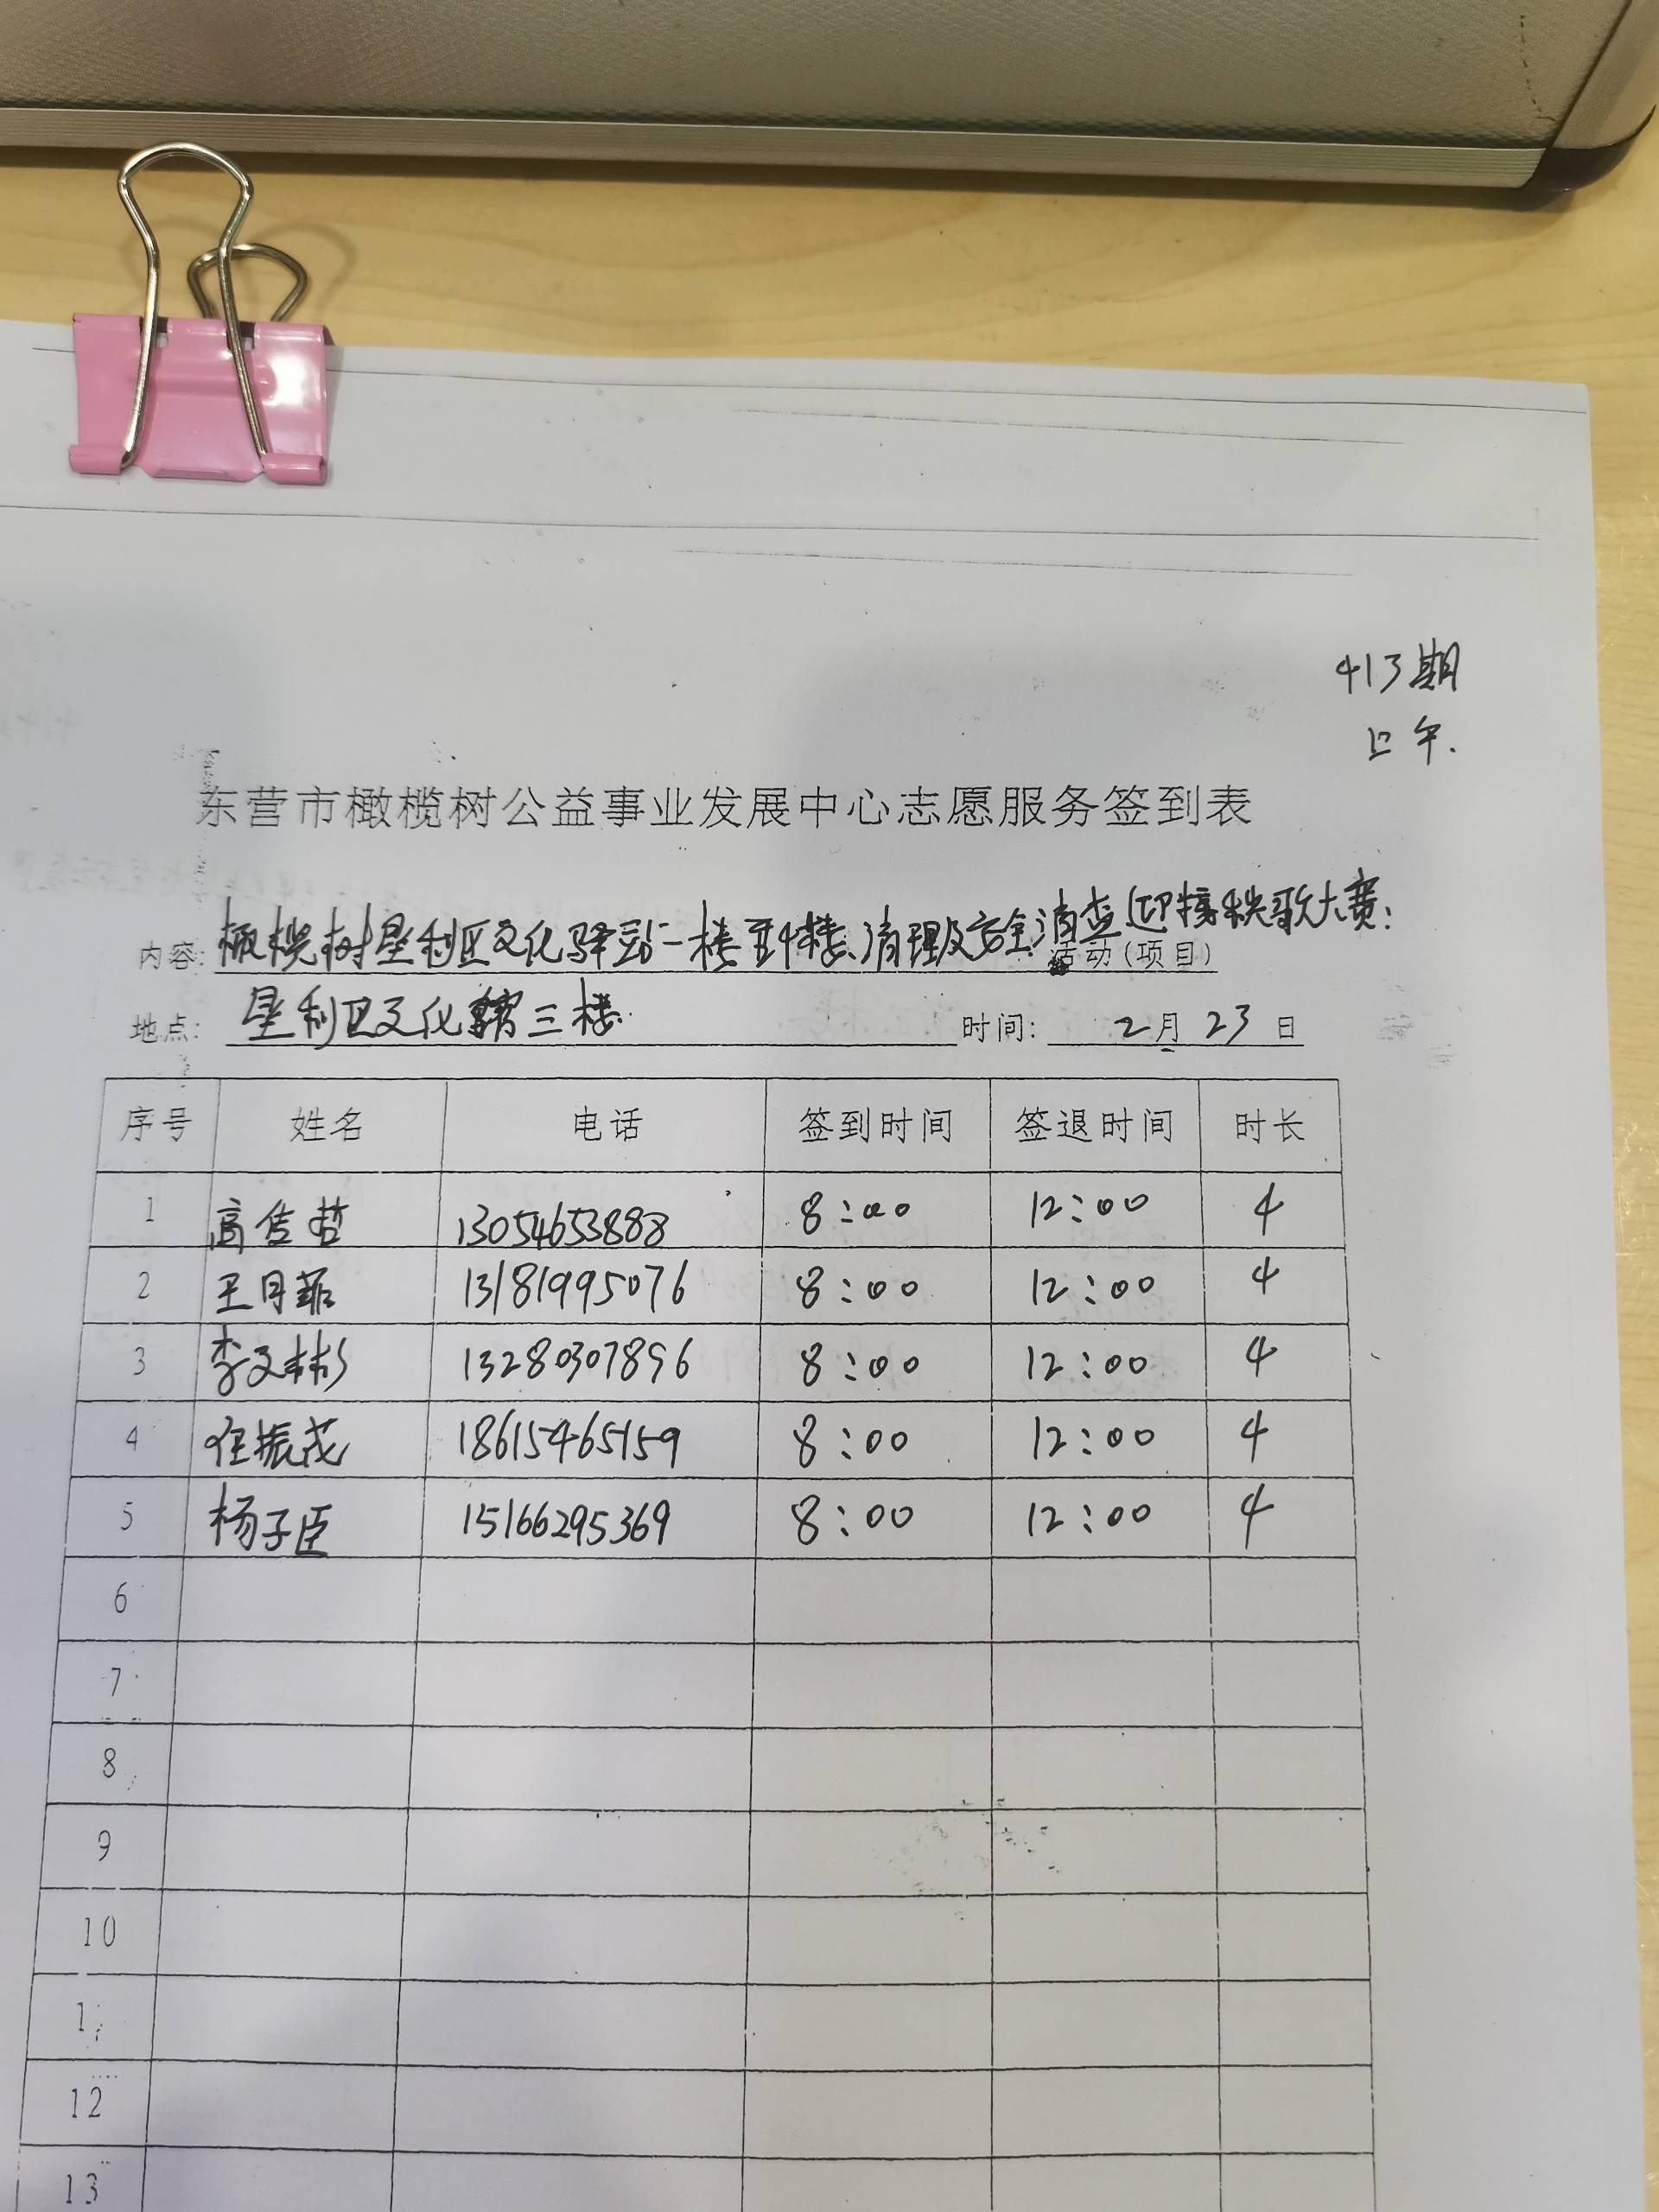 413期
上午.
东营市橄榄树公益事业发展中心志愿服务签到表
内容: 橄榄树垦利区文化驿站一楼至4楼、清理及安全消查迎接秧歌大赛. 活动(项目)
地点: 垦利区文化馆三楼. 时间: 2月23日
序号 姓名 电话 签到时间 签退时间 时长
1 高佳哲 13054653888 8:00 12:00 4
2 王月茹 13181995076 8:00 12:00 4
3 李文彬 13280307896 8:00 12:00 4
4 任振茂 18615465159 8:00 12:00 4
5 杨子臣 15166295369 8:00 12:00 4
6
7
8
9
10
12
13